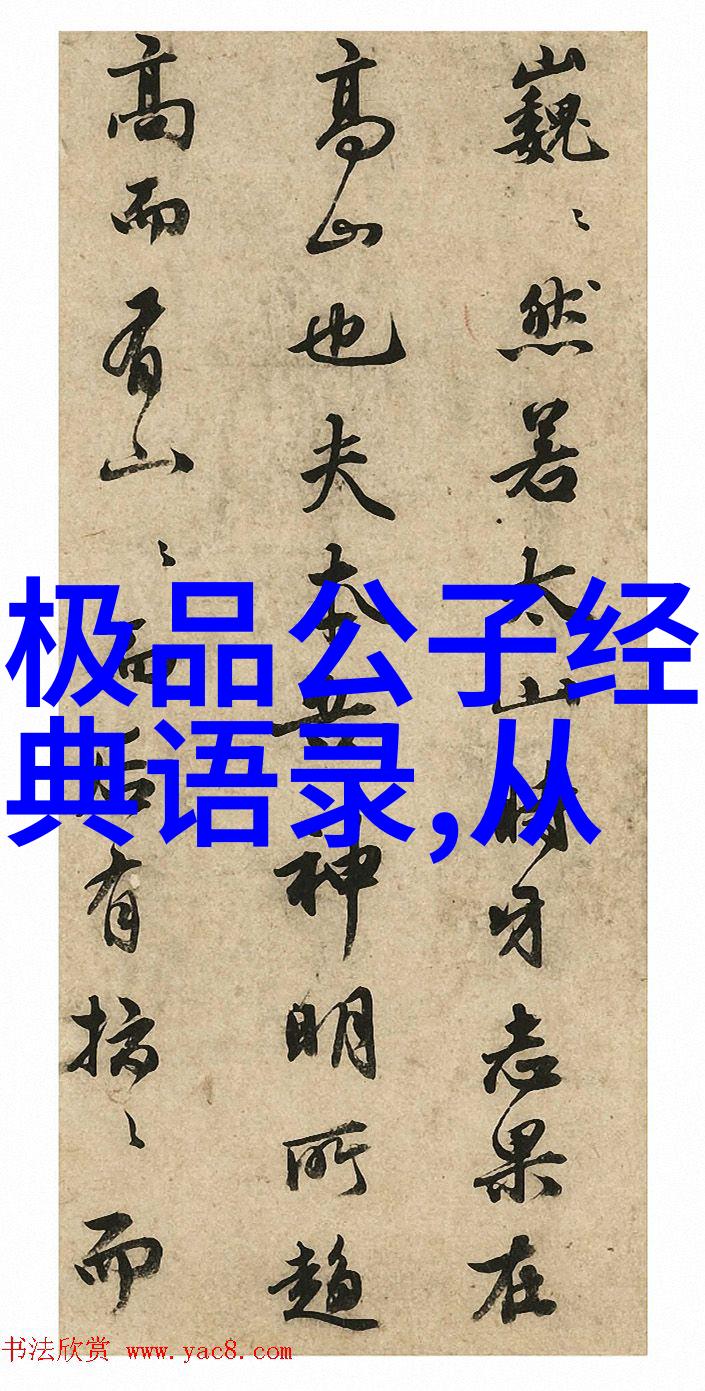 巍〻然若太山時牙志果在
高山也夫本神明所趨
高而有山〻而后有搞〻而
极品公子经
典语录,从
书法欣赏 www.yac8.com